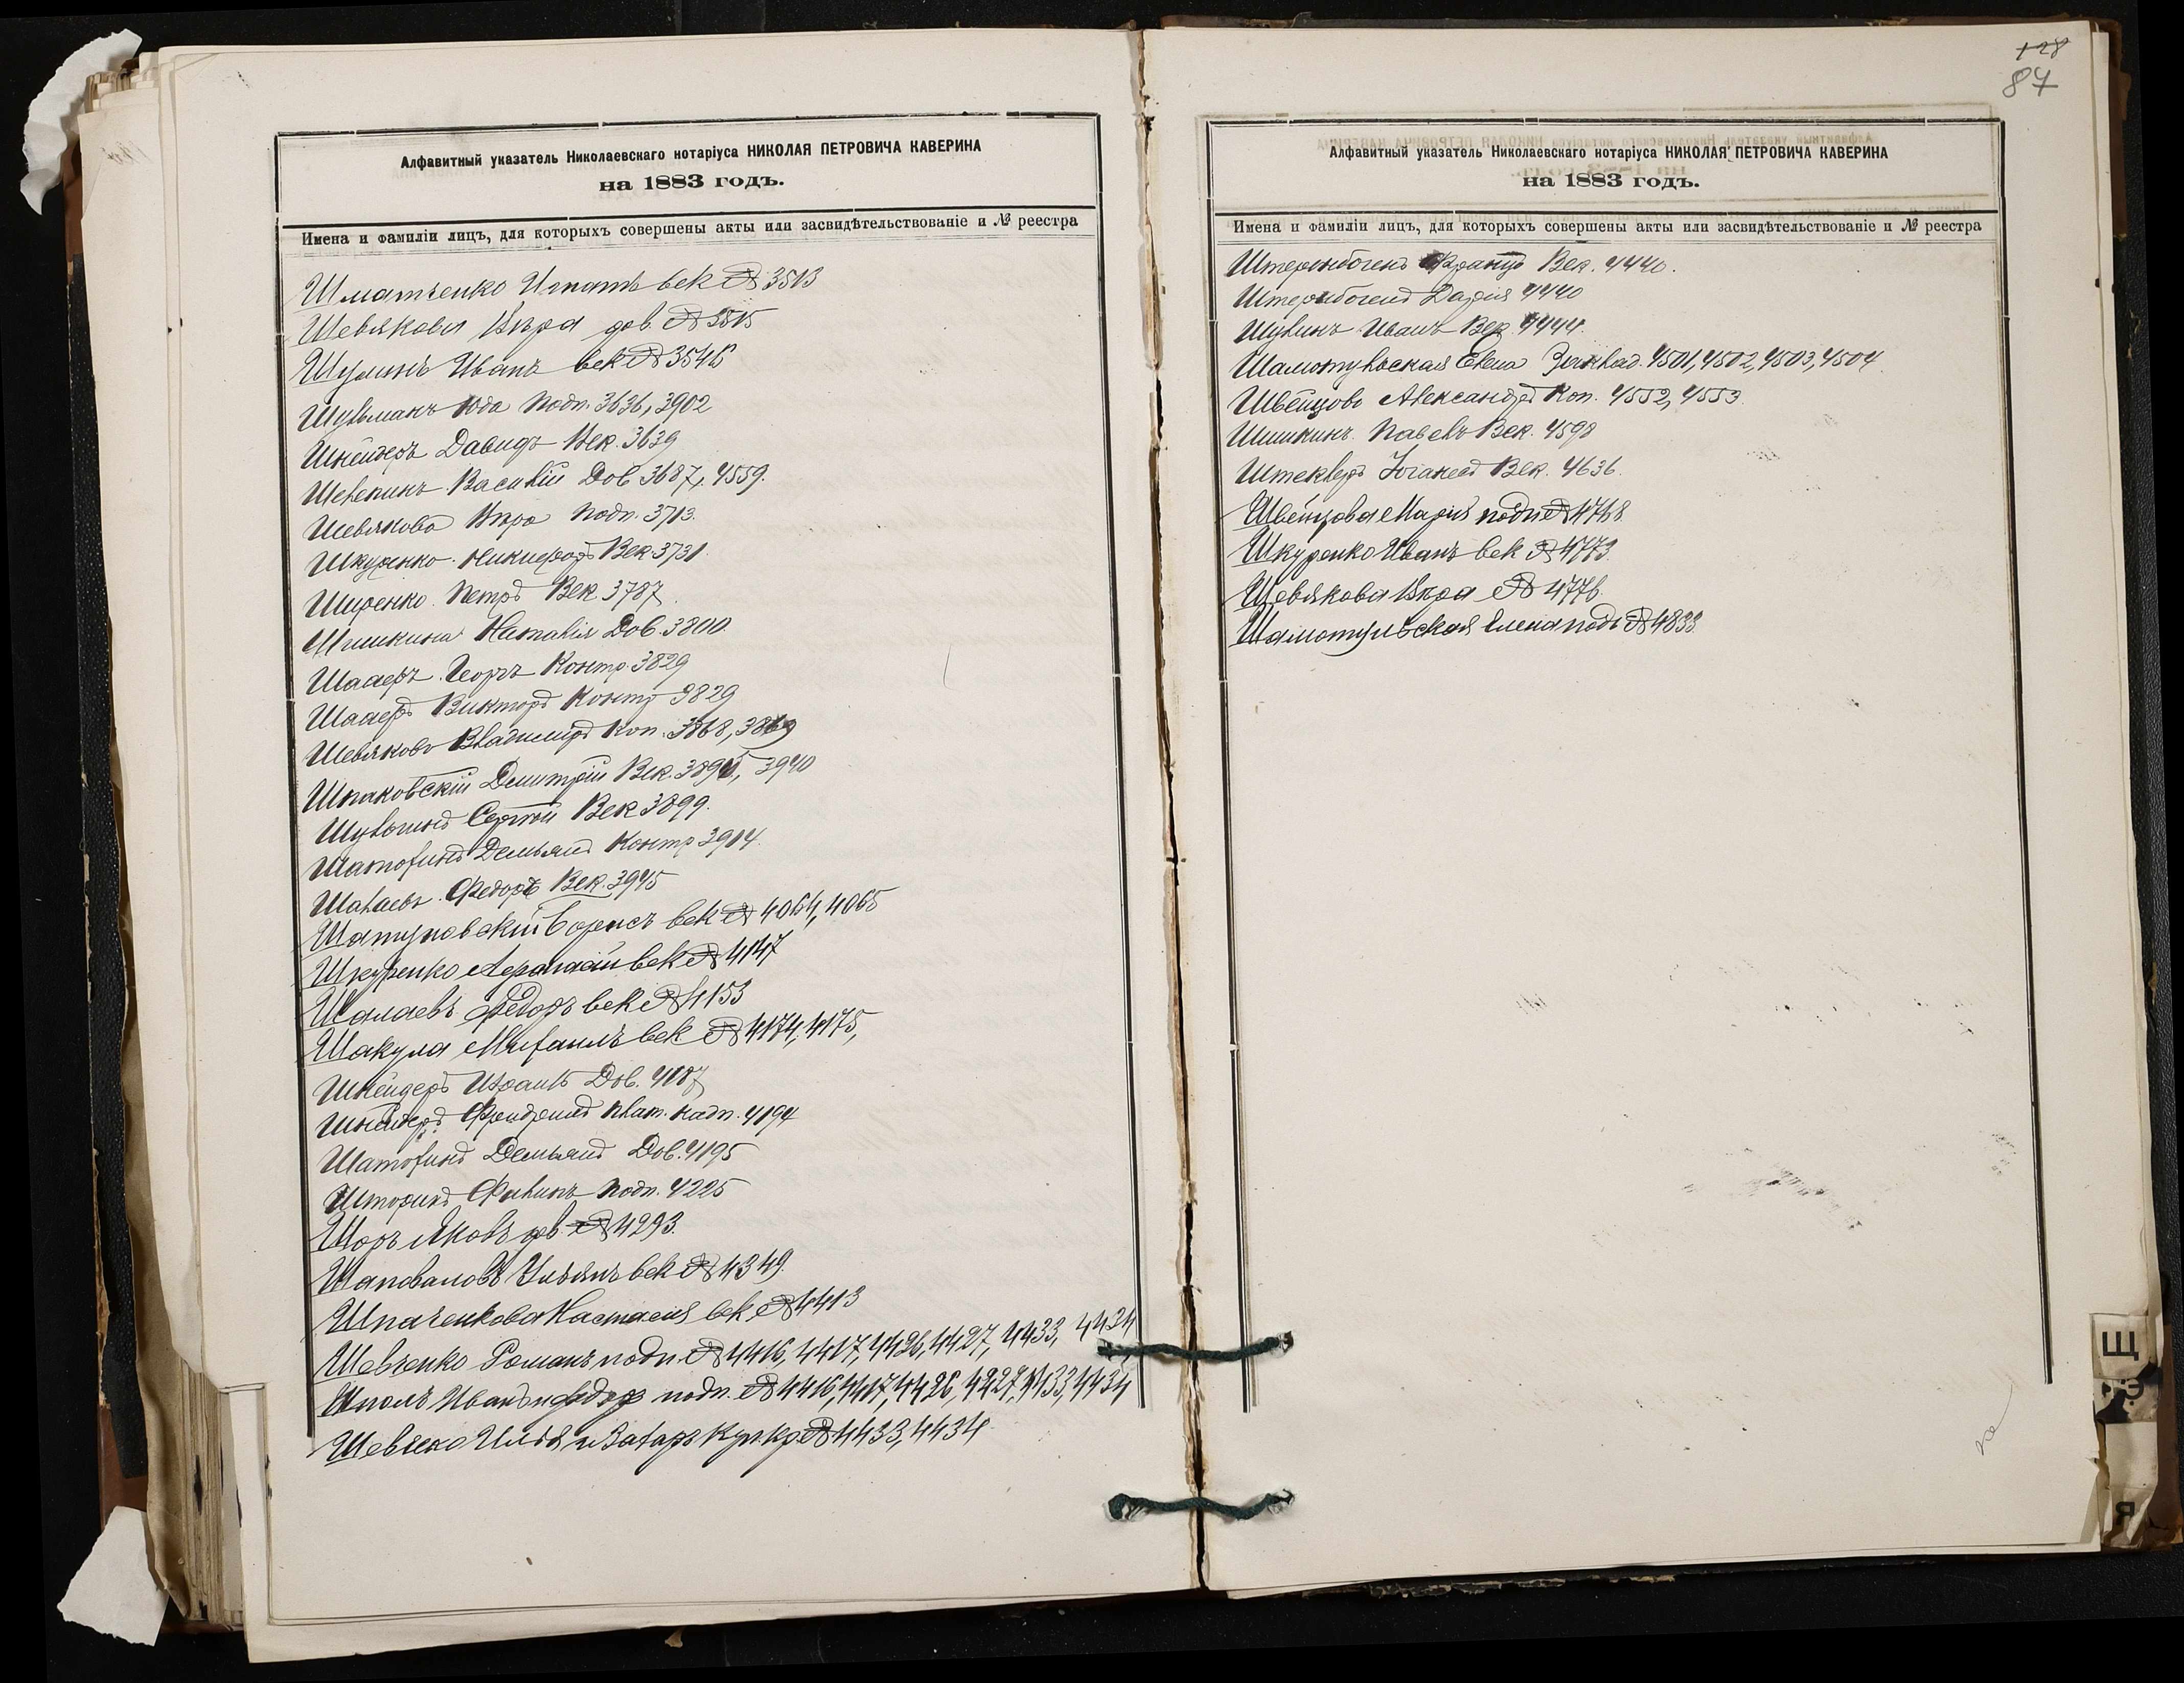 Алфавитный указатель Николаевскаго нотаріуса НИКОЛАЯ ПЕТРОВИЧА КАВЕРИНА
на 1883 годъ.
Имена и фамиліи лицъ, для которыхъ совершены акты или засвидѣтельствованіе и № реестра
Шматченко Игнатъ век № 3513
Шевякова Вѣра дов № 3515
Шулинъ Иванъ век № 3546
Шульманъ Юда подп. 3636, 3902
Шнейдеръ Давидъ Век. 3639
Шепелинъ Василій Дов 3687, 4559.
Шевякова Вѣра подп. 3713.
Шкуренко Никифоръ Век 3731.
Ширенко Петръ Век 3787.
Шишкина Наталія Дов. 3800.
Шааеръ Георгъ Контр. 3829
Шааеръ Викторъ Контр 3829
Шевяково Владимиръ Коп. 3868, 3869
Шпаковскій Дмитрій Век. 3895, 3940
Шульгинъ Сергѣй Век 3899.
Шатохинъ Демьянъ Контр 3914.
Шалаевъ Федоръ Век. 3945
Шатуновскій Борисъ век № 4064, 4065
Шкуренко Афанасій век № 4147
Шалаевъ Федоръ век № 4153
Шакула Михаилъ век № 4174, 4175,
Шнейдеръ Израиль Дов. 4187
Шнейдеръ Фридрихъ плат. надп. 4194
Шатохинъ Демьянъ Дов. 4195
Шторинъ Филипъ подп. 4225
Шоръ Яковъ дов № 4293.
Шаповаловъ Ульянъ век № 4349.
Шпаченкова Настасия век № 4413
Шевченко Романъ подп № 4416, 4417, 4426, 4427, 4433, 4434
Шполъ Иванъ и Федор подп. № 4416, 4417, 4426, 4427, 4433, 4434
Шевченко Илья и Захаръ Куп кр. № 4433, 4434
128
87
Алфавитный указатель Николаевскаго нотаріуса НИКОЛАЯ ПЕТРОВИЧА КАВЕРИНА
на 1883 годъ.
Имена и фамиліи лицъ, для которыхъ совершены акты или засвидѣтельствованіе и № реестра
Штернбогенъ Францъ Век. 4440.
Штернбогенъ Дарія 4440
Шулинъ Иванъ Век. 4444.
Шамотульская Елена 4501, 4502, 4503, 4504
Швейцово Александръ Коп. 4552, 4553
Шишкинъ Павелъ Век. 4598
Штеклеръ Іоганесъ Век. 4636.
Швейцова Марія подп № 4768.
Шкуренко Иванъ век № 4773.
Шевякова Вѣра № 4776.
Шамотульская Елена подп № 4833
Щ
Э
Я